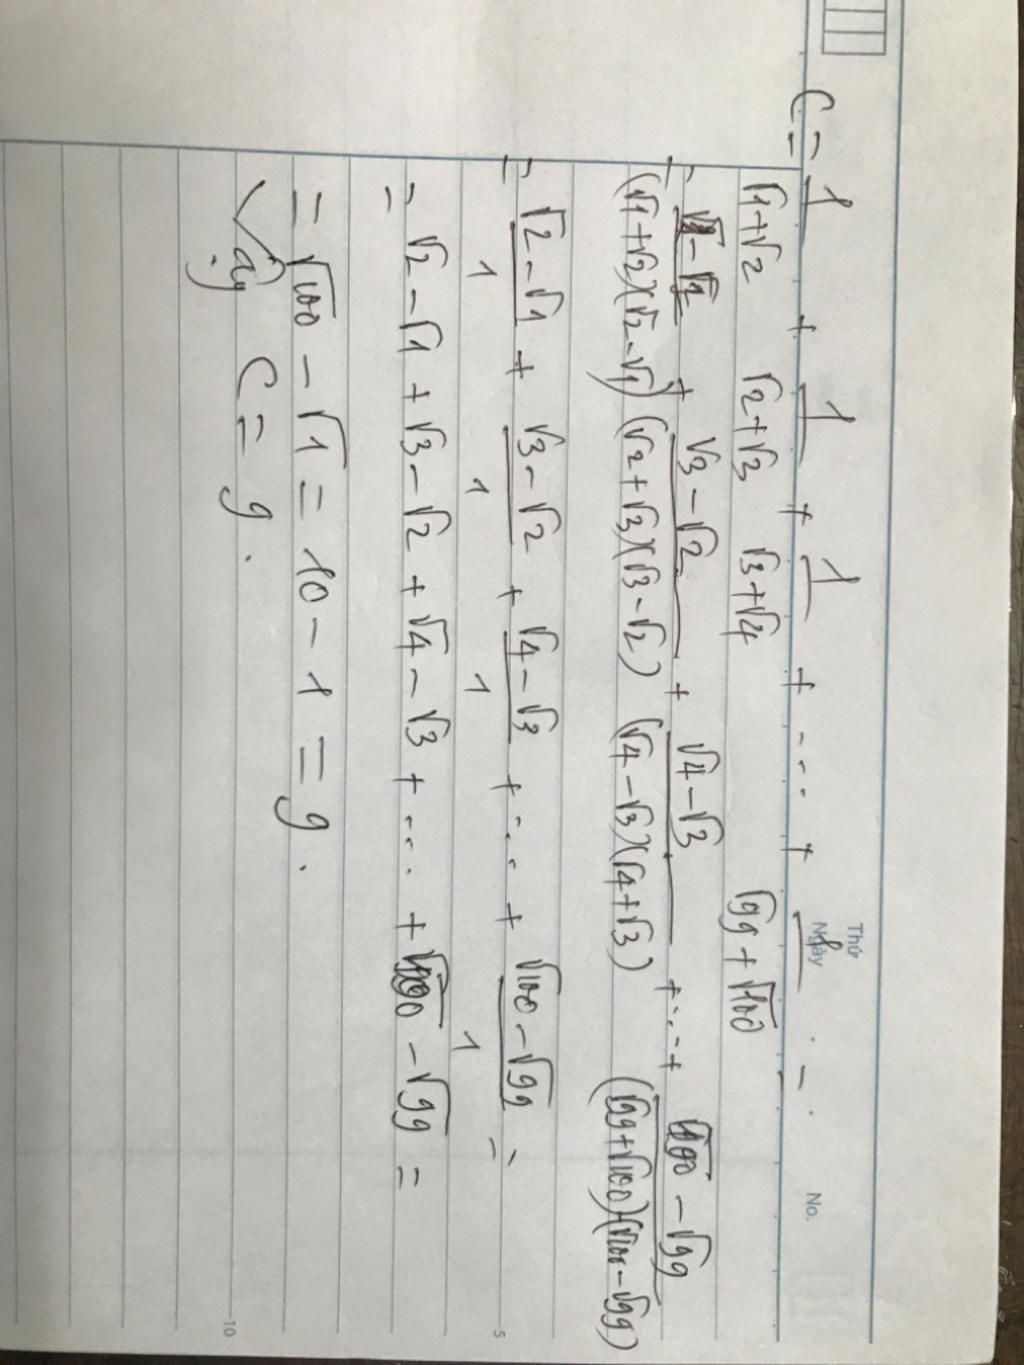 Thứ
Ngày No.
C = 1/(√1+√2) + 1/(√2+√3) + 1/(√3+√4) + ... + 1/(√99+√100) =
= (√2-√1)/((√1+√2)(√2-√1)) + (√3-√2)/((√2+√3)(√3-√2)) + (√4-√3)/((√4-√3)(√4+√3)) + ... + (√100-√99)/((√99+√100)(√100-√99))
= (√2-√1)/1 + (√3-√2)/1 + (√4-√3)/1 + ... + (√100-√99)/1 =
= √2-√1+√3-√2+√4-√3+...+√100-√99 =
= √100-√1 = 10-1 = 9.
Vậy C = 9.
5
10